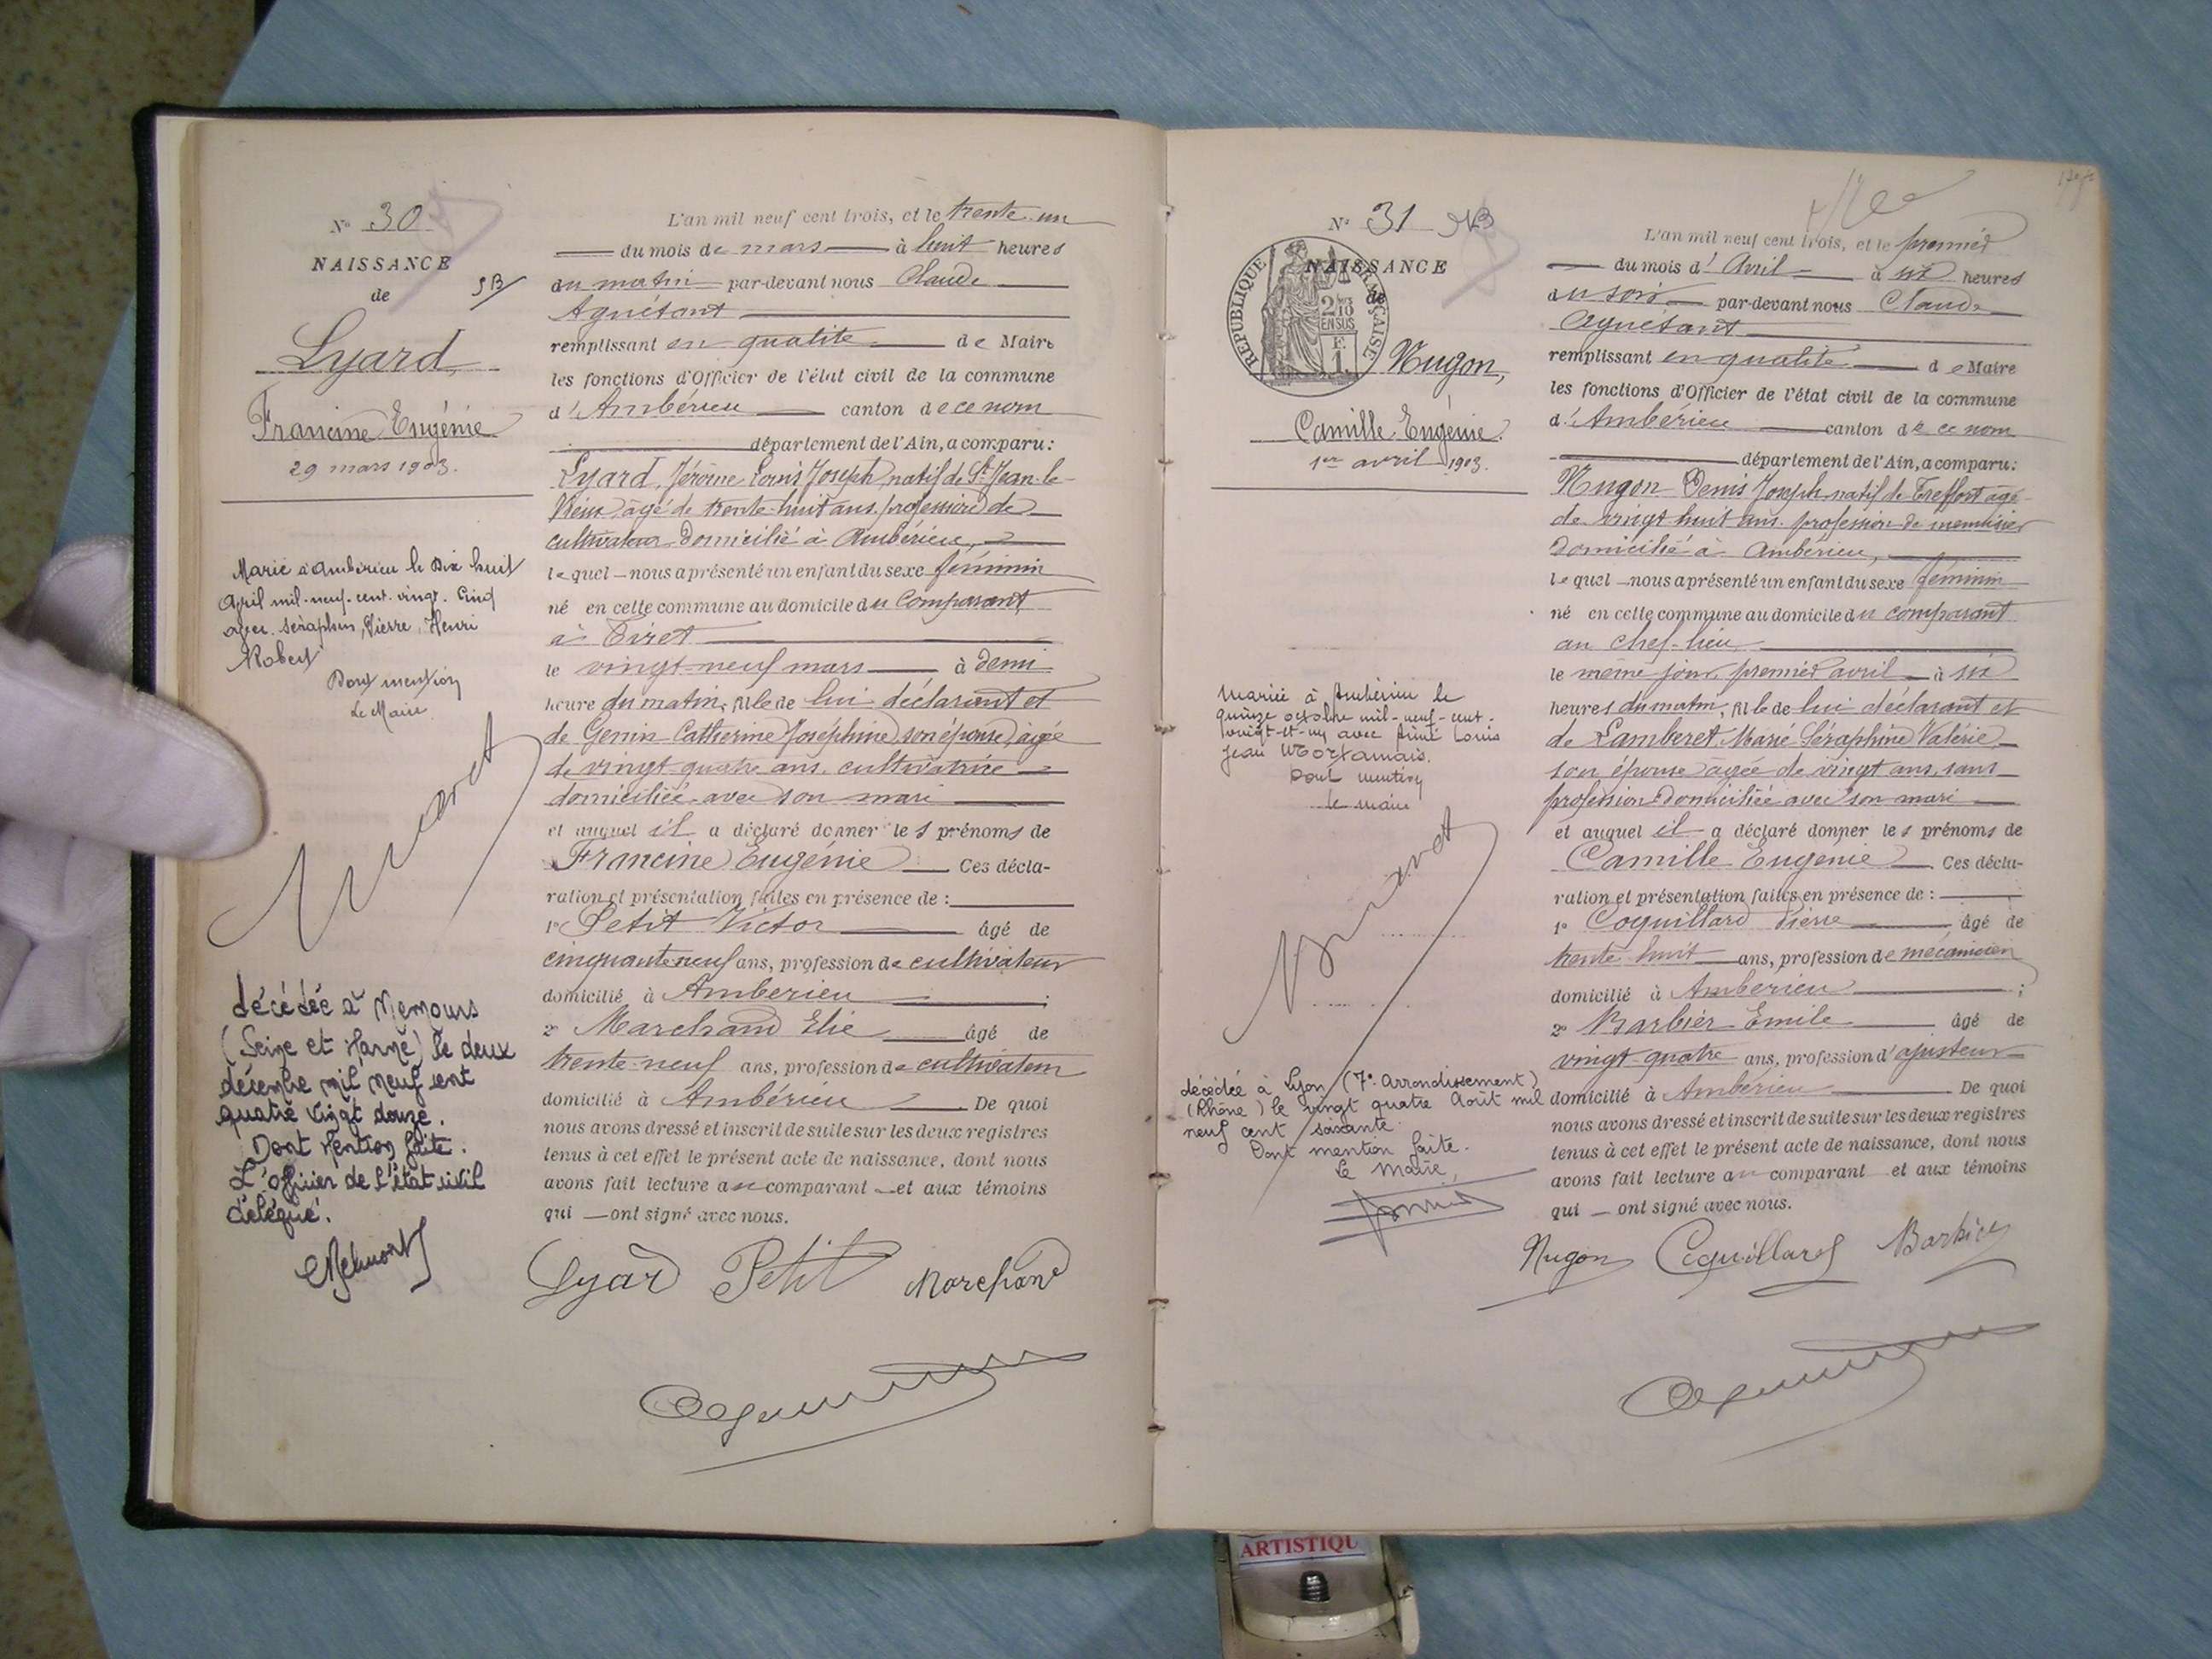 N° 30
NAISSANCE
de
Lyard
Francine Eugénie
29 mars 1903.
Marié à Ambérieu le Dix huit
Avril mil-neuf-cent-vingt-Cinq
avec Séraphin, Pierre, Henri
Robert
Dont mention
Le Maire
décédée à Nemours
(Seine et Marne) le deux
décembre mil neuf cent
quatre vingt douze.
Dont Mention faite.
L'officier de l'état civil
délégué.
L'an mil neuf cent trois, et le trente-un
du mois de mars à huit heures
du matin par-devant nous Claude
Aguétant
remplissant en qualité de Maire
les fonctions d'Officier de l'état civil de la commune
d'Ambérieu canton de ce nom
département de l'Ain, a comparu:
Lyard, Jérôme Louis Joseph, natif de St Jean-le-
Vieux âgé de trente-huit ans, profession de
cultivateur domicilié à Ambérieu,
lequel nous a présenté un enfant du sexe féminin
né en cette commune au domicile du Comparant
à Tiret
le vingt-neuf mars à demi
heure du matin, fille de lui déclarant et
de Genin Catherine Joséphine, son épouse, âgée
de vingt-quatre ans, cultivatrice
domiciliée avec son mari
et auquel il a déclaré donner les prénoms de
Francine Eugénie Ces décla-
ration et présentation faites en présence de :
1° Petit Victor âgé de
cinquante-neuf ans, profession de cultivateur
domicilié à Ambérieu ;
2° Marchand Elie âgé de
trente-neuf ans, profession de cultivateur
domicilié à Ambérieu De quoi
nous avons dressé et inscrit de suite sur les deux registres
tenus à cet effet le présent acte de naissance, dont nous
avons fait lecture au comparant et aux témoins
qui ont signé avec nous.
Lyard Petit Marchand
N° 31
RÉPUBLIQUE FRANÇAISE
NAISSANCE
de
Nugon,
Camille Eugénie.
1er avril 1903.
Mariée à Ambérieu le
quinze octobre mil-neuf-cent-
vingt-et-un avec Aimé Louis
Jean
Dont mention
le maire
décédée à Lyon (7e Arrondissement)
(Rhône) le vingt quatre Août mil
neuf cent soixante.
Dont mention faite.
Le Maire,
L'an mil neuf cent trois, et le premier
du mois d'Avril à six heures
du soir par-devant nous Claude
Aguétant
remplissant en qualité de Maire
les fonctions d'Officier de l'état civil de la commune
d'Ambérieu canton de ce nom
département de l'Ain, a comparu:
Nugon Denis Joseph, natif de Treffort âgé
de vingt huit ans, profession de menuisier
domicilié à Ambérieu,
lequel nous a présenté un enfant du sexe féminin
né en cette commune au domicile du comparant
au chef-lieu
le même jour, premier avril à six
heures du matin, fille de lui déclarant et
de Lamberet Marie Séraphine Valérie
son épouse âgée de vingt ans, sans
profession domiciliée avec son mari
et auquel il a déclaré donner les prénoms de
Camille Eugénie Ces décla-
ration et présentation faites en présence de :
1° Coquillard Pierre âgé de
trente-huit ans, profession de mécanicien
domicilié à Ambérieu ;
2° Barbier Emile âgé de
vingt quatre ans, profession d'ajusteur
domicilié à Ambérieu De quoi
nous avons dressé et inscrit de suite sur les deux registres
tenus à cet effet le présent acte de naissance, dont nous
avons fait lecture au comparant et aux témoins
qui ont signé avec nous.
Nugon Coquillard Barbier
ARTISTIQU